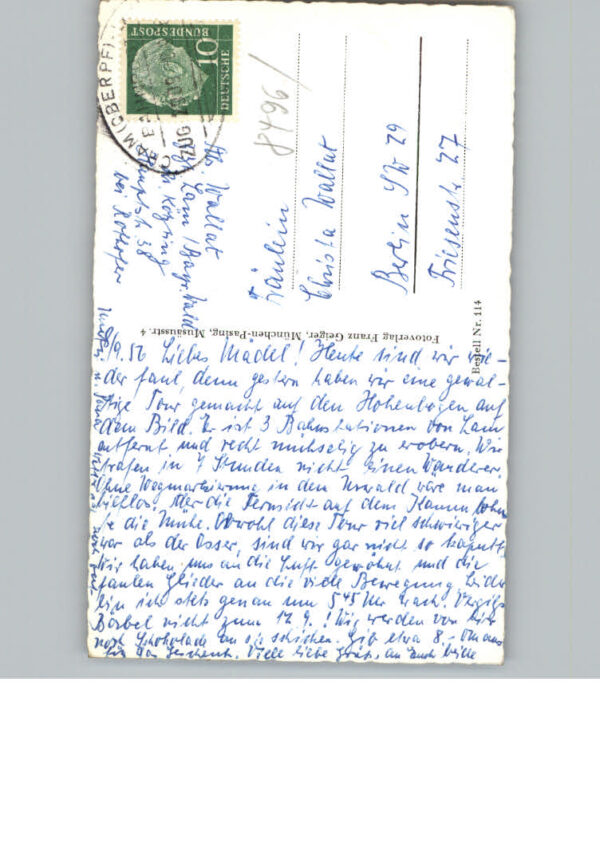 DEUTSCHE
BUNDESPOST
10
CHAM (OBERPF)
ZUG
8496/
Abs. Wallat
Lam / Bayr. Wald
b. Kötzting
Hauptstr. 38
bei Rothofer
Fräulein
Christa Wallat
Berlin SW 29
Friesenstr. 27
Fotoverlag Franz Geiger, München-Pasing, Musäusstr. 4
Bestell Nr. 114
8/9.56 Liebes Mädel! Heute sind wir wie-
der faul, denn gestern haben wir eine gewal-
tige Tour gemacht auf den Hohenbogen auf
dem Bild. Er ist 3 Bahnstationen von Lam
entfernt und recht mühselig zu erobern. Wir
trafen in 7 Stunden nicht einen Wanderer.
Ohne Wegmarkierung in dem Urwald wäre man
hilflos. Aber die Fernsicht auf dem Kamm lohn-
te die Mühe. Obwohl diese Tour viel schwieriger
war als der Osser, sind wir gar nicht so kaputt.
Wir haben uns an die Luft gewöhnt und die
faulen Glieder an die viele Bewegung. Leider
bin ich stets genau um 5 45 Uhr wach. Vergiß
Bärbel nicht zum 12.9.! Wir werden von hier
noch Schokolade an sie schicken. Gib etwa 8,- DM aus
für das Geschenk. Viele liebe Grüße an Euch beide